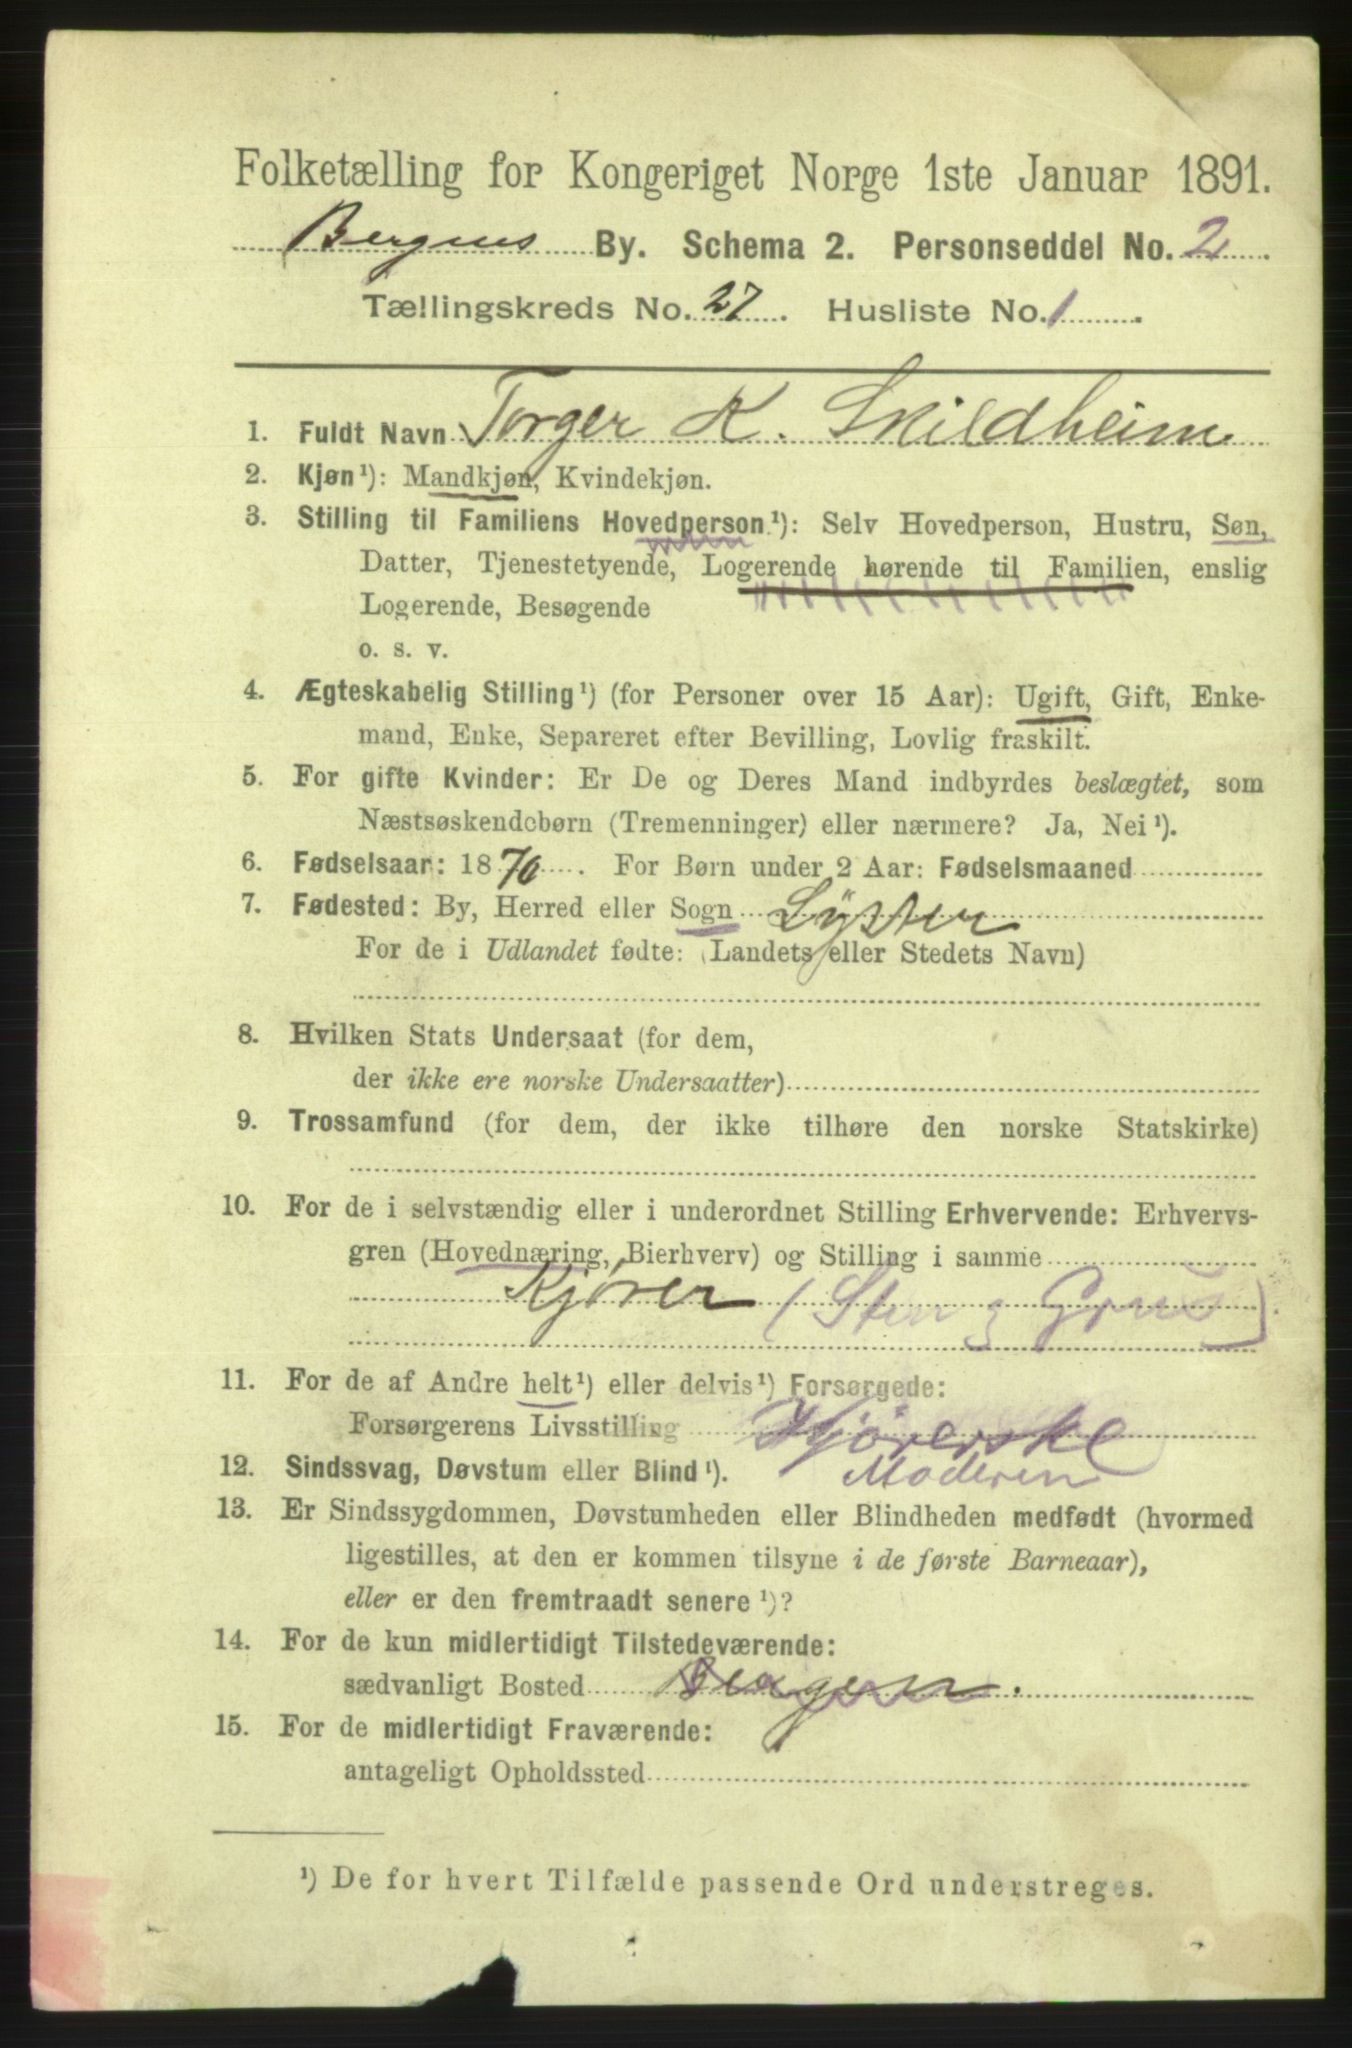 Folketælling for Kongeriget Norge 1ste Januar 1891.
Bergens By. Schema 2. Personseddel No. 2.
Tællingskreds No. 27. Husliste No. 1.
1. Fuldt Navn Torger K. Skildheim
2. Kjøn¹): Mandkjøn, Kvindekjøn.
3. Stilling til Familiens Hovedperson¹): Selv Hovedperson, Hustru, Søn,
Datter, Tjenestetyende, Logerende hørende til Familien, enslig
Logerende, Besøgende
o. s. v.
4. Ægteskabelig Stilling¹) (for Personer over 15 Aar): Ugift, Gift, Enke-
mand, Enke, Separeret efter Bevilling, Lovlig fraskilt.
5. For gifte Kvinder: Er De og Deres Mand indbyrdes beslægtet, som
Næstsøskendebørn (Tremenninger) eller nærmere? Ja, Nei¹).
6. Fødselsaar: 1870. For Børn under 2 Aar: Fødselsmaaned
7. Fødested: By, Herred eller Sogn Lyster
For de i Udlandet fødte: (Landets eller Stedets Navn)
8. Hvilken Stats Undersaat (for dem,
der ikke ere norske Undersaatter)
9. Trossamfund (for dem, der ikke tilhøre den norske Statskirke)
10. For de i selvstændig eller i underordnet Stilling Erhvervende: Erhvervs-
gren (Hovednæring, Bierhverv) og Stilling i samme
Kjører (Sten & Grus)
11. For de af Andre helt¹) eller delvis¹) Forsørgede:
Forsørgerens Livsstilling Kjørerske
Moderen
12. Sindssvag, Døvstum eller Blind¹).
13. Er Sindssygdommen, Døvstumheden eller Blindheden medfødt (hvormed
ligestilles, at den er kommen tilsyne i de første Barneaar),
eller er den fremtraadt senere¹)?
14. For de kun midlertidigt Tilstedeværende:
sædvanligt Bosted Bergen.
15. For de midlertidigt Fraværende:
antageligt Opholdssted
¹) De for hvert Tilfælde passende Ord understreges.